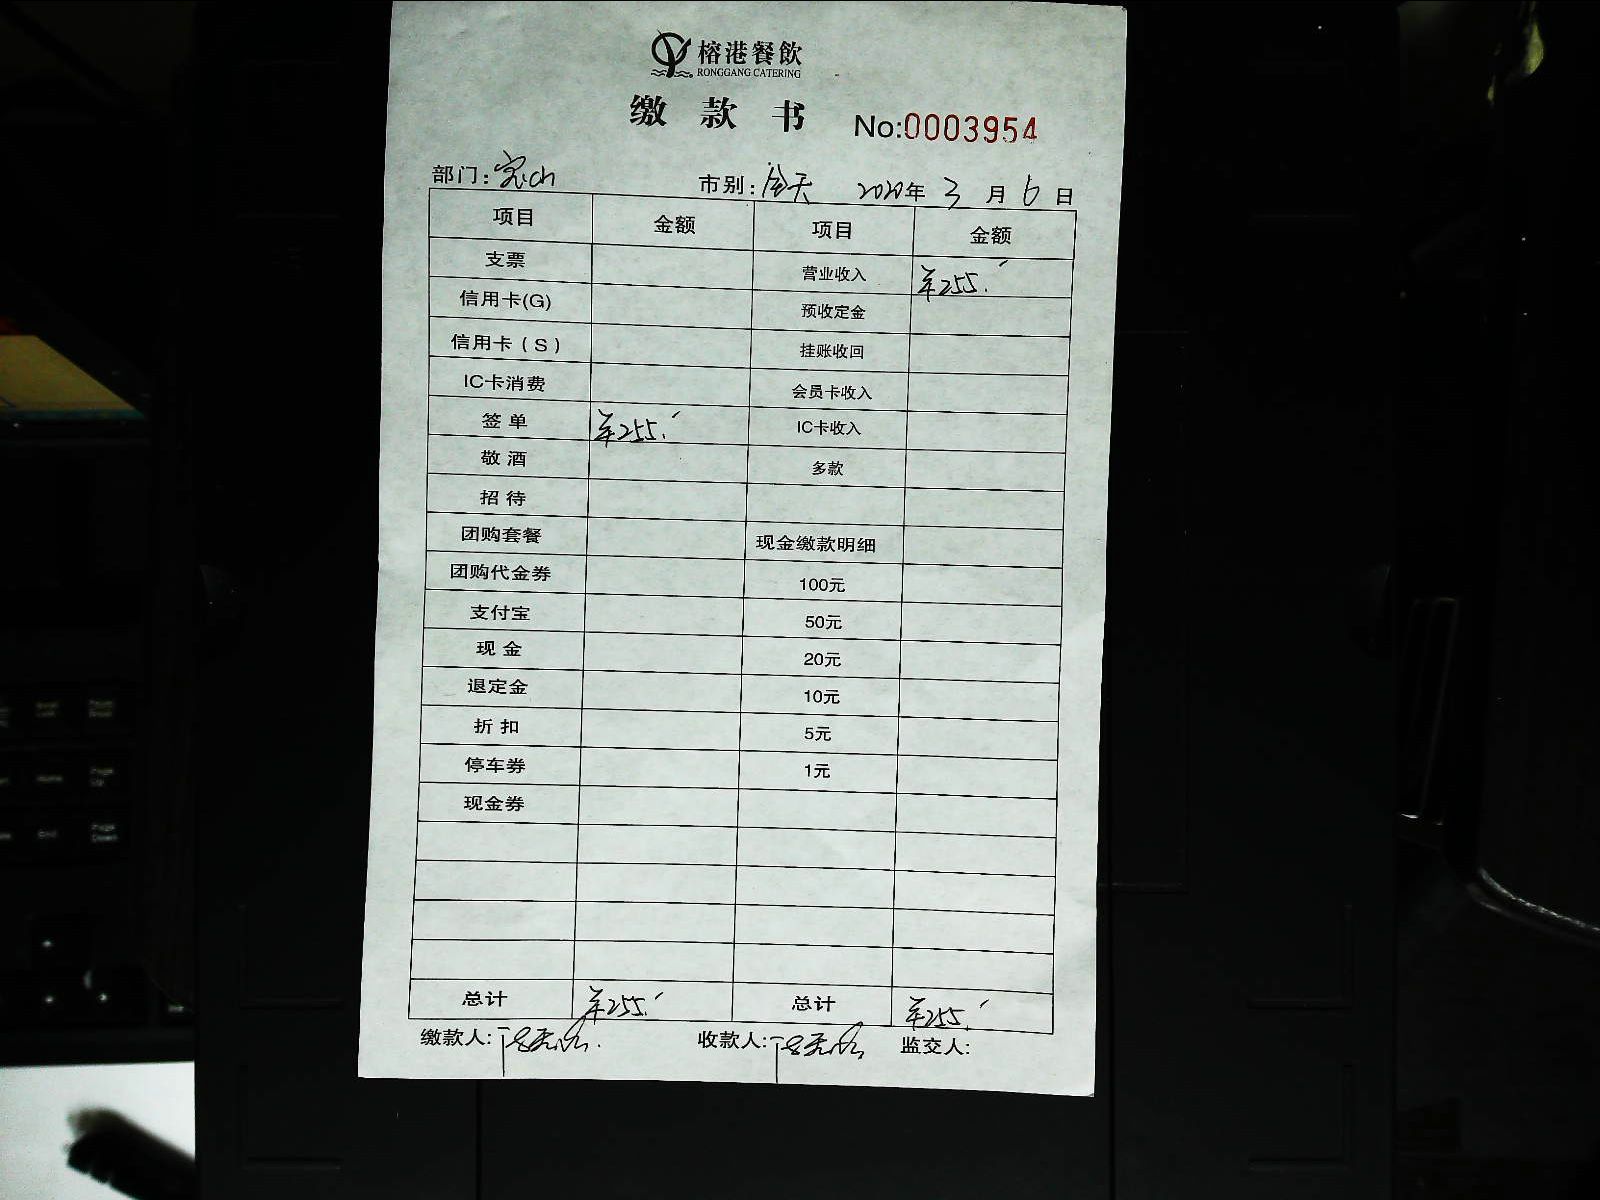 榕港餐飲
RONGGANG CATERING
缴 款 书 No:0003954
部门: 市别: 全天 2020年 3 月 6 日
项目 金额 项目 金额
支票 营业收入 ¥255.
信用卡(G) 预收定金
信用卡（S） 挂账收回
IC卡消费 会员卡收入
签 单 ¥255. IC卡收入
敬 酒 多款
招 待
团购套餐 现金缴款明细
团购代金券 100元
支付宝 50元
现 金 20元
退定金 10元
折 扣 5元
停车券 1元
现金券
总计 ¥255. 总计 ¥255.
缴款人: 收款人: 监交人: